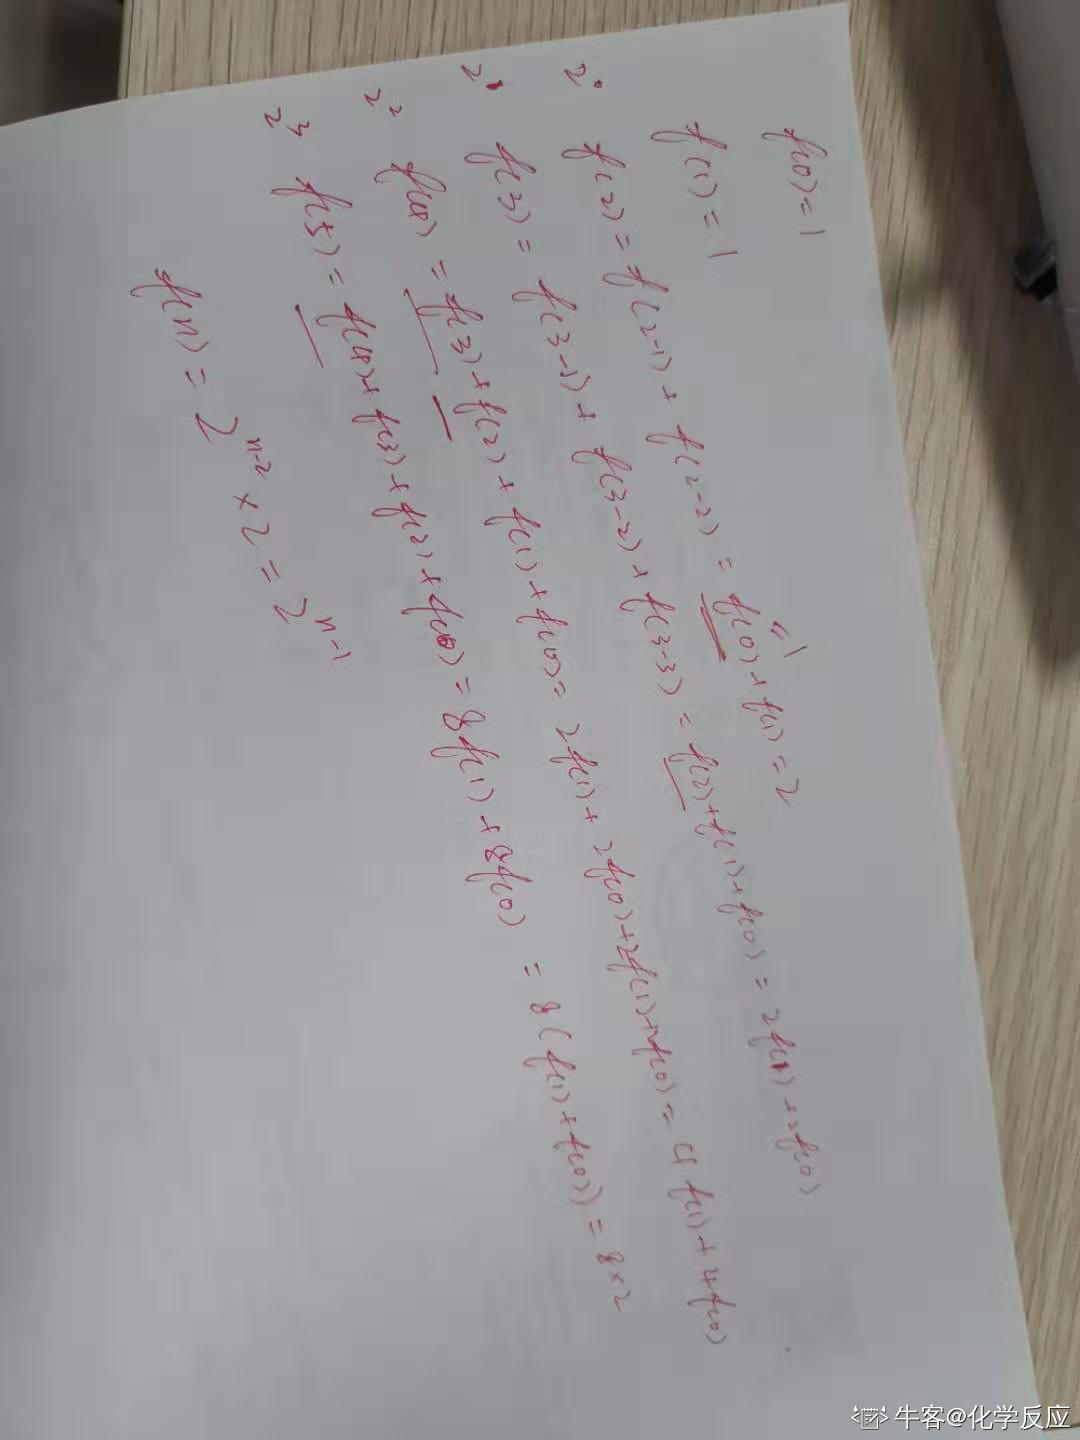 f(0)=1
f(1)=1
=1
2⁰ f(2)=f(2-1)+f(2-2)=f(0)+f(1)=2
2¹ f(3)=f(3-1)+f(3-2)+f(3-3)=f(2)+f(1)+f(0)=2f(1)+2f(0)
2² f(4)=f(3)+f(2)+f(1)+f(0)=2f(1)+2f(0)+2f(1)+2f(0)=4f(1)+4f(0)
2³ f(5)=f(4)+f(3)+f(2)+f(0)=8f(1)+8f(0)=8(f(1)+f(0))=8×2
f(n)=2ⁿ⁻²×2=2ⁿ⁻¹
牛客@化学反应